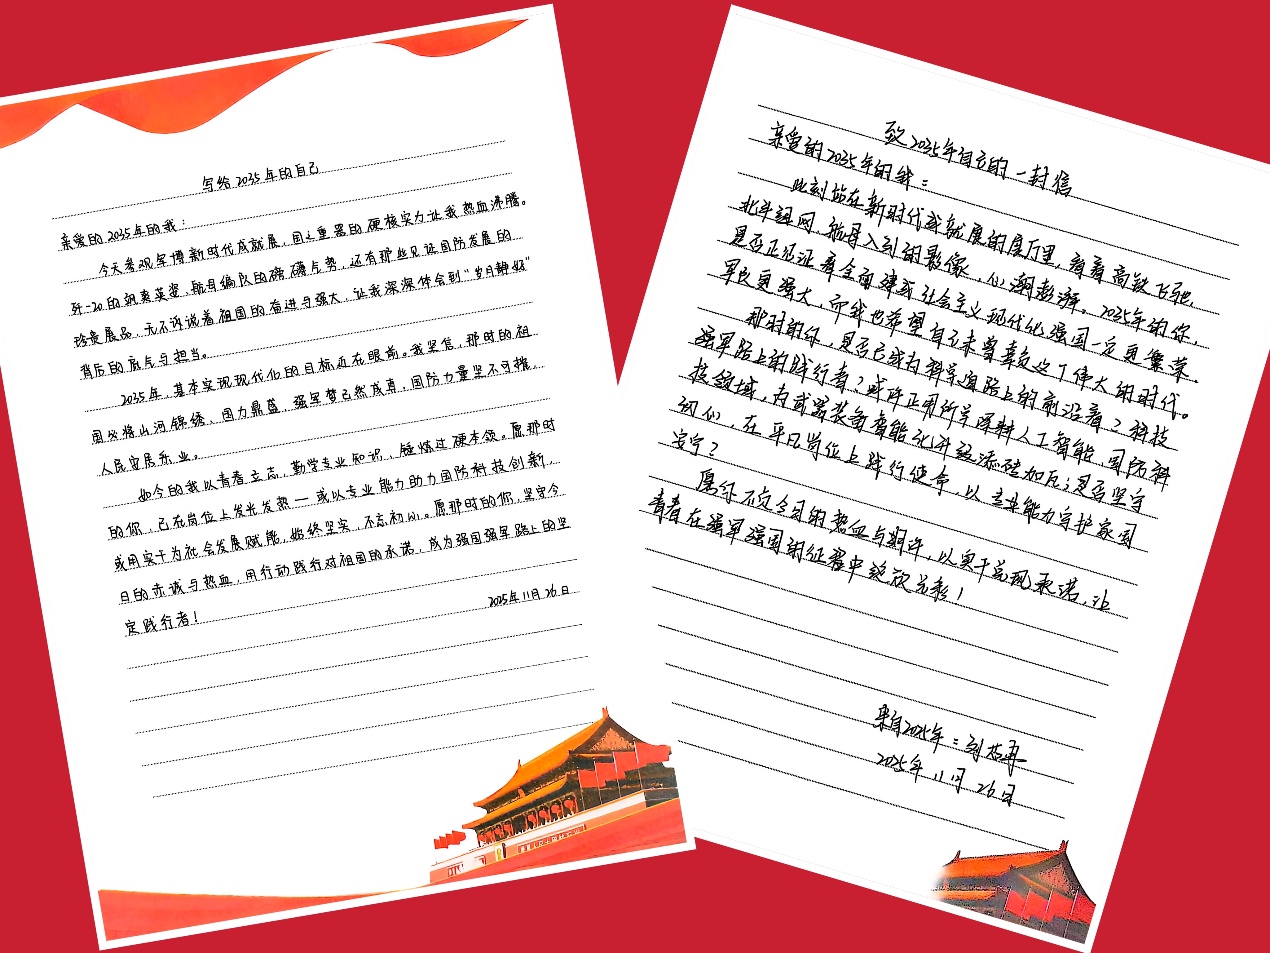 写给2035年的自己
亲爱的2035年的我：
今天参观军博新时代成就展，国之重器的硬核实力让我热血沸腾。
歼-20的飒爽英姿，航母编队的磅礴气势，还有那些见证国防发展的
珍贵展品，无不诉说着祖国的奋进与强大，让我深深体会到“岁月静好”
背后的底气与担当。
2035年，基本实现现代化的目标近在眼前。我坚信，那时的祖
国必将山河锦绣，国力鼎盛，强军梦已然成真，国防力量坚不可摧，
人民安居乐业。
如今的我以青春立志，勤学专业知识，锤炼过硬本领。愿那时
的你，已在岗位上发光发热—或以专业能力助力国防科技创新，
或用实干为社会发展赋能，始终坚实，不忘初心。愿那时的你，坚守今
日的赤诚与热血，用行动践行对祖国的承诺，成为强国强军路上的坚
定践行者！
2025年11月26日
致2035年自己的一封信
亲爱的2035年的我：
此刻站在新时代成就展的展厅里，看着高铁飞驰，
北斗组网，航母入列的影像，心潮澎湃。2035年的你，
是否正见证着全面建成社会主义现代化强国一定更繁荣，
军队更强大，而我也希望自己未曾辜负这个伟大的时代。
那时的你，是否已成为科学道路上的前沿者？科技
强军路上的践行者？或许正用所学深耕人工智能，国防科
技领域，为武器装备智能化升级添砖加瓦；是否坚守
初心，在平凡岗位上践行使命，以专业能力守护家国
安宁？
愿你不负今日的热血与期许，以实干兑现承诺，让
青春在强军强国的征程中绽放光彩！
来自2025年：刘
2025年11月26日